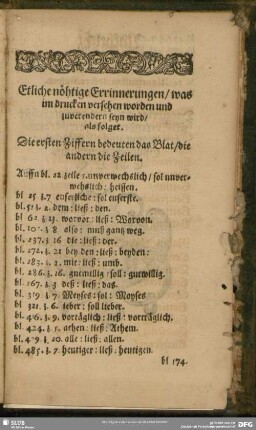 Etliche nöhtige Errinnerungen/ was
im drucken versehen worden und
zuverendern seyn wird/
als folget.
Die ersten Ziffern bedeuten das Blat/die
andern die Zeilen.
bl. 22 zeile unverwechslich/ sol unver-
wechslich: heissen.
bl 25 z.7 euserliche: sol euserste.
bl. z. 2. dem: ließ: den.
bl 62. z. worvor: ließ: Worvon.
bl. z 8 also: muß gantz weg.
bl. 237. z 16 die: ließ: der.
bl. 272. z. 21 bey den: ließ: beyden:
bl. 283. z. 2. mit: ließ: umb.
bl. 286. z. 16. gutmillig: soll: gutwillig.
bl. 167. z. 3 deß: ließ: das.
bl. 319 z. 7 Meyses: sol: Moyses
bl. 321. z. 6 ieber: soll lieber.
bl. 416. z. 9. vortäglich: ließ: vorträglich.
bl. 424. z. 5. athen: ließ: Athem.
bl. 419 z. 20. alle: ließ: allen.
bl. 485. z. 7. heutiger: ließ: heutigen.
bl 174.
SLUB
DFG